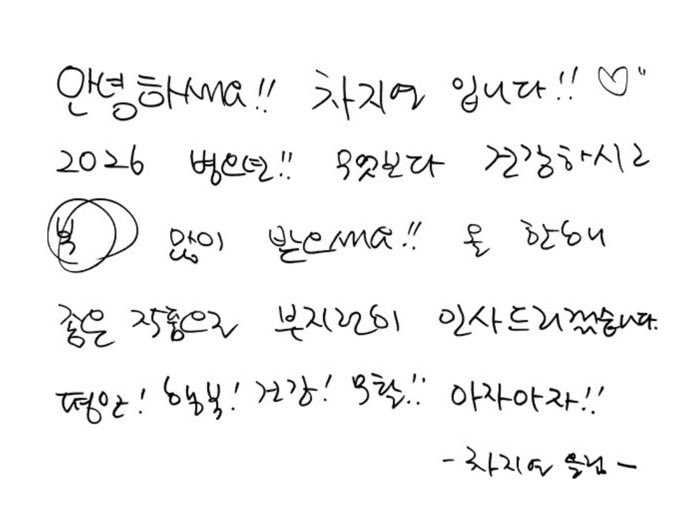 안녕하세요!! 차지연 입니다!! ♡"
2026 병오년!! 무엇보다 건강하시고
복 많이 받으세요!! 올 한해
좋은 작품으로 부지런히 인사드리겠습니다.
평안! 행복! 건강! 무탈!! 아자아자!!
- 차지연 올림 -